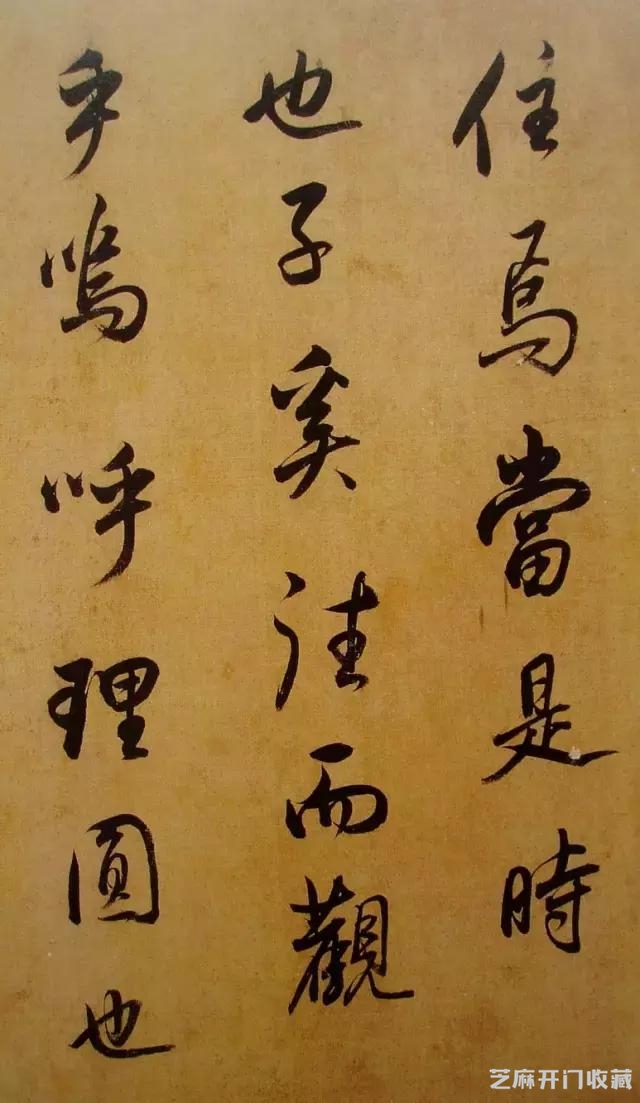 住焉當是時
也子奚往而觀
乎嗚呼理圓也
芝麻开门收藏